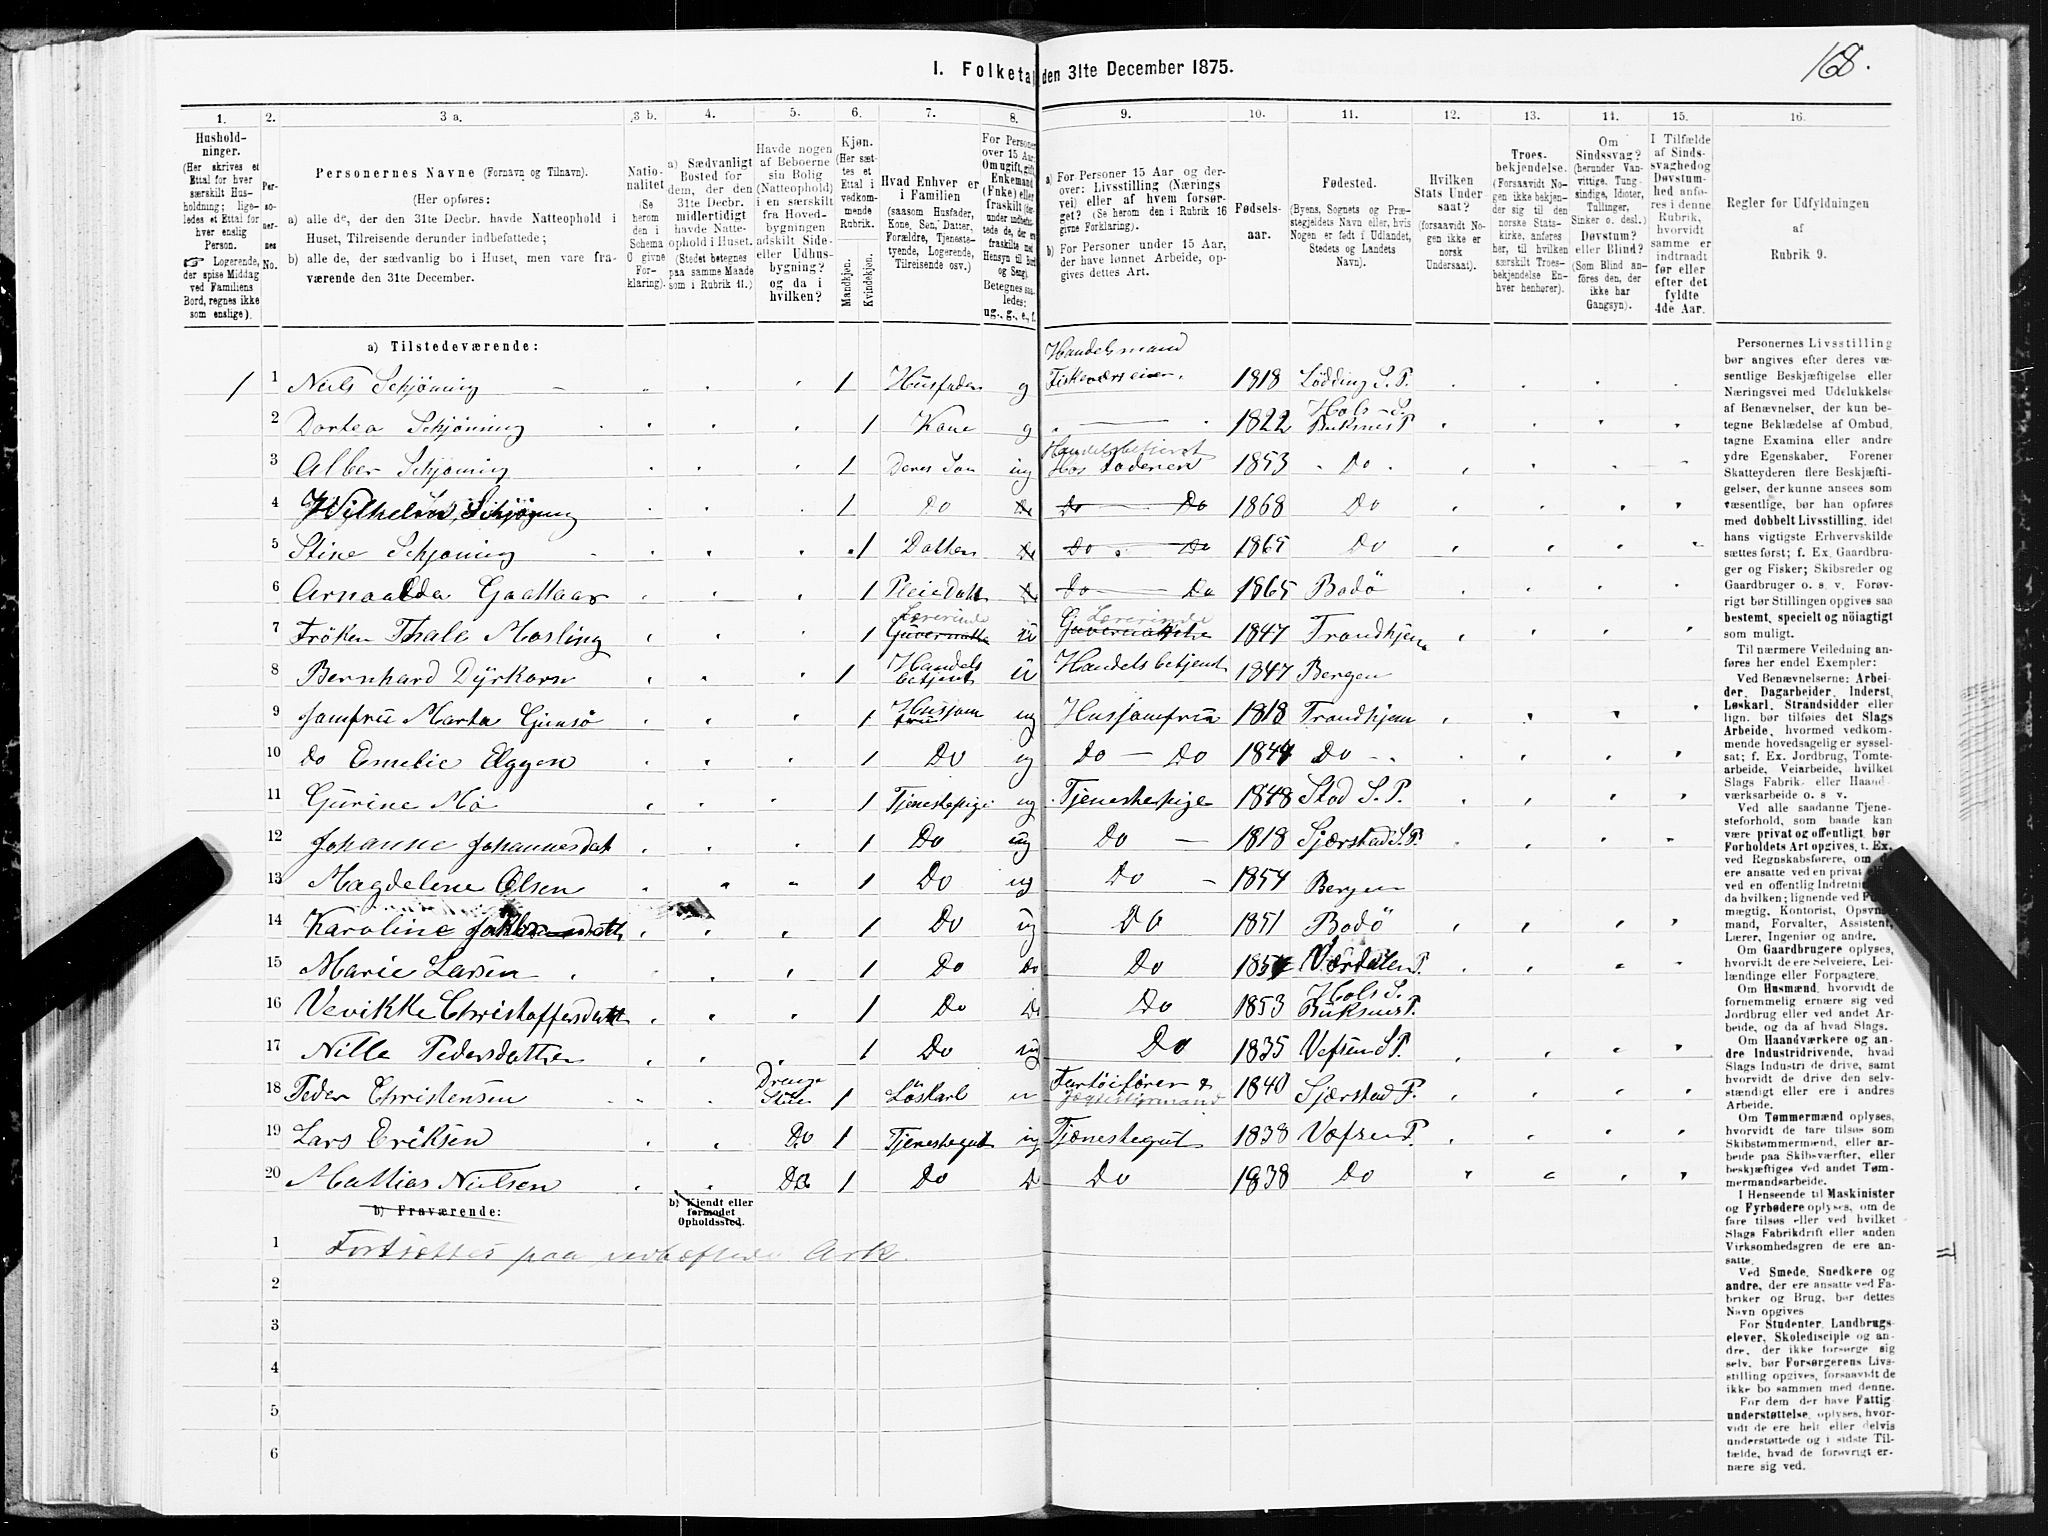 168.
I. Folketal den 31te December 1875.
1. 2. 3 a. 3 b. 4. 5. 6. 7. 8. 9. 10. 11. 12. 13. 14. 15. 16.
Hushold-
ninger.
(Her skrives et
Ettal for hver
særskilt Hus-
holdning; lige-
ledes et Ettal for
hver enslig
Person.
☞ Logerende,
der spise Middag
ved Familiens
Bord, regnes ikke
som enslige).
Per-
so-
ner-
nes
No.
Personernes Navne (Fornavn og Tilnavn).
(Her opføres:
a) alle de, der den 31te Decbr. havde Natteophold i
Huset, Tilreisende derunder indbefattede;
b) alle de, der sædvanlig bo i Huset, men vare fra-
værende den 31te December.
Natio-
nalitet
(Se
herom
den i
Schema
O givne
For-
klaring).
a) Sædvanligt
Bosted for
dem, der den
31te Decbr.
midlertidigt
havde Natte-
ophold i Huset.
(Stedet betegnes
paa samme Maade
som i Rubrik 11.)
Havde nogen
af Beboerne
sin Bolig
(Natteophold)
i en særskilt
fra Hoved-
bygningen
adskilt Side-
eller Udhus-
bygning?
og da i
hvilken?
Kjøn.
(Her sæt-
tes et
Ettal i
vedkom-
mende
Rubrik.
Mandkjøn.
Kvindekjøn.
Hvad Enhver er
i Familien
(saasom Husfader,
Kone, Søn, Datter,
Forældre, Tjeneste-
tyende, Logerende,
Tilreisende osv.)
For Personer
over 15 Aar:
Om ugift, gift,
Enkemand
(Enke) eller
fraskilt
Betegnes saa-
ledes:
ug., g., e., f.
a) For Personer 15 Aar og der-
over: Livsstilling (Nærings
vei) eller af hvem forsør-
get? (Se herom den i Rubrik 16
givne Forklaring).
b) For Personer under 15 Aar,
der have lønnet Arbeide, op-
gives dettes Art.
Fødsels-
aar.
Fødested.
(Byens, Sognets og Præ-
stegjeldets Navn eller, hvis
Nogen er født i Udlandet,
Stedets og Landets
Navn).
Hvilken
Stats Under
saat?
(forsaavidt No-
gen ikke er
norsk
Undersaat).
Troes-
bekjendelse.
(Forsaavidt No-
gen ikke bekjen-
der sig til den
norske Stats-
kirke, anføres
her, til hvilken
særskilt Troes-
bekjendelse En-
hver henhører).
Om
Sindssvag?
(herunder Van-
vittige, Tung-
sindige, Idioter,
Tullinger,
Sinker o. desl.)
Døvstum?
eller Blind?
(Som Blind an-
føres den, der
ikke har
Gangsyn).
I Tilfælde
af Sinds-
svaghed og
Døvstum-
hed anfø-
res i denne
Rubrik,
hvorvidt
samme er
indtraadt
før eller
efter det
fyldte
4de Aar.
Regler for Udfyldningen
af
Rubrik 9.
a) Tilstedeværende:
Handelsmand
1 1 Niels Schjøning 1 Husfader g Fiskeværseier. 1818 Lödding S. P.
Hols S.
2 Dortea Schjønning 1 Kone g 1822 Buksnes P
Handelsbetjent
3 Alber Schjøning 1 Deres Søn ug Hos Faderen 1853 Do
4 Wilhelm Schjøning 1 Do Do Do Do 1868 Do
5 Stine Schjøning 1 Datter Do Do Do 1865 Do
6 Arnoalda Gaallaas 1 Pleie Datt Do Do Do 1865 Bodö
Lærerinde Lærerinde
7 Fröken Thale Mosling 1 Guvernatte u Guvernatte 1847 Trondhjem
8 Bernhard Dÿrkorn 1 Handels betjent u Handelsbetjent 1847 Bergen
9 Jomfru Marta Gimsö 1 Husjomfru ug Husjomfru 1818 Trondhjem
10 Do Emelie Eggen 1 Do ug Do Do 1844 Do
11 Gurine Mö 1 Tjenestepige ug Tjenestepige 1848 Stod S. P.
12 Johanne Johannesdat 1 Do ug Do 1818 Sjærstad S. P.
13 Magdelene Olsen 1 Do ug Do 1854 Bergen
14 Karoline 1 Do ug Do 1851 Bodö
15 Marie Larsen 1 Do Do Do 1854 Værdalen P.
Hols S.
16 Vevikke Christoffersdatt 1 Do Do Do 1853 Buksnes P.
17 Nille Pedersdatter 1 Do ug Do 1835 Vefsen S P.
18 Peder Christensen Drenge Stue 1 Löskarl u Fartöifører & 1840 Sjærstad P.
19 Lars Eriksen Do 1 Tjenestegut ug Tjænestegut 1838 Vefsen P.
20 Mathias Nielsen Do 1 Do D Do 1838 Do
b) Fraværende:
b) Kjendt eller
formodet
Opholdssted.
1 Fortsættes paa vedhæftede Ark.
2
3
4
5
6
Personernes Livsstilling
bør angives efter deres væ-
sentlige Beskjæftigelse eller
Næringsvei med Udelukkelse
af Benævnelser, der kun be-
tegne Beklædelse af Ombud,
tagne Examina eller andre
ydre Egenskaber. Forener
Skatteyderen flere Beskjæfti-
gelser, der kunne ansees som
væsentlige, bør han opføres
med dobbelt Livsstilling, idet
hans vigtigste Erhvervskilde
sættes først; f. Ex. Gaardbru-
ger og Fisker; Skibsreder og
Gaardbruger o. s. v. Forøv-
rigt bør Stillingen opgives saa
bestemt, specielt og nöiagtigt
som muligt.
Til nærmere Veiledning an-
føres her endel Exempler:
Ved Benævnelserne: Arbei-
der, Dagarbeider, Inderst,
Løskarl, Strandsidder eller
lign. bør tilføies det Slags
Arbeide, hvormed vedkom-
mende hovedsagelig er syssel-
sat; f. Ex. Jordbrug, Tomte-
arbeide, Veiarbeide, hvilket
Slags Fabrik- eller Haand-
værksarbeide o. s. v.
Ved alle saadanne Tjene-
steforhold, som baade kan
være privat og offentligt, bør
Forholdets Art opgives, t. Ex.
ved Regnskabsførere, om de
ere ansatte ved en privat
ved en offentlig Indretning
da hvilken; lignende ved
mægtig, Kontorist, Opsyns-
mand, Forvalter, Assistent,
Lærer, Ingeniør og andre.
Om Gaardbrugere oplyses,
hvorvidt de ere Selveiere, Lei-
lændinge eller Forpagtere.
Om Husmænd, hvorvidt de
fornemmelig ernære sig ved
Jordbrug eller ved andet Ar-
beide, og da af hvad Slags.
Om Haandværkere og an-
dre Industridrivende, hvad
Slags Industri de drive, samt
hvorvidt de drive den selv-
stændigt eller ere i andres
Arbeide.
Om Tømmermænd oplyses,
hvorvidt de fare tilsøs som
Skibstømmermænd, eller ar-
beide paa Skibsværfter, eller
beskjæftiges ved andet Tøm-
mermandsarbeide.
I Henseende til Maskinister
og Fyrbødere oplyses, om de
fare tilsøs eller ved hvilket
Slags Fabrikdrift eller anden
Virksomhedsgren de ere an-
satte.
Ved Smede, Snedkere og
andre, der ere ansatte ved Fa-
briker og Brug, bør dettes
Navn opgives
For Studenter, Landbrugs-
elever, Skoledisciple og an-
dre, der ikke forsørge sig
selv, bør Forsørgerens Livs-
stilling opgives, forsaavidt de
ikke bo sammen med denne.
For dem, der have Fattig-
understøttelse, oplyses, hvor-
vidt de ere helt eller delvis
understøttede og i sidste Til-
fælde, hvad de forøvrigt er-
nære sig ved.